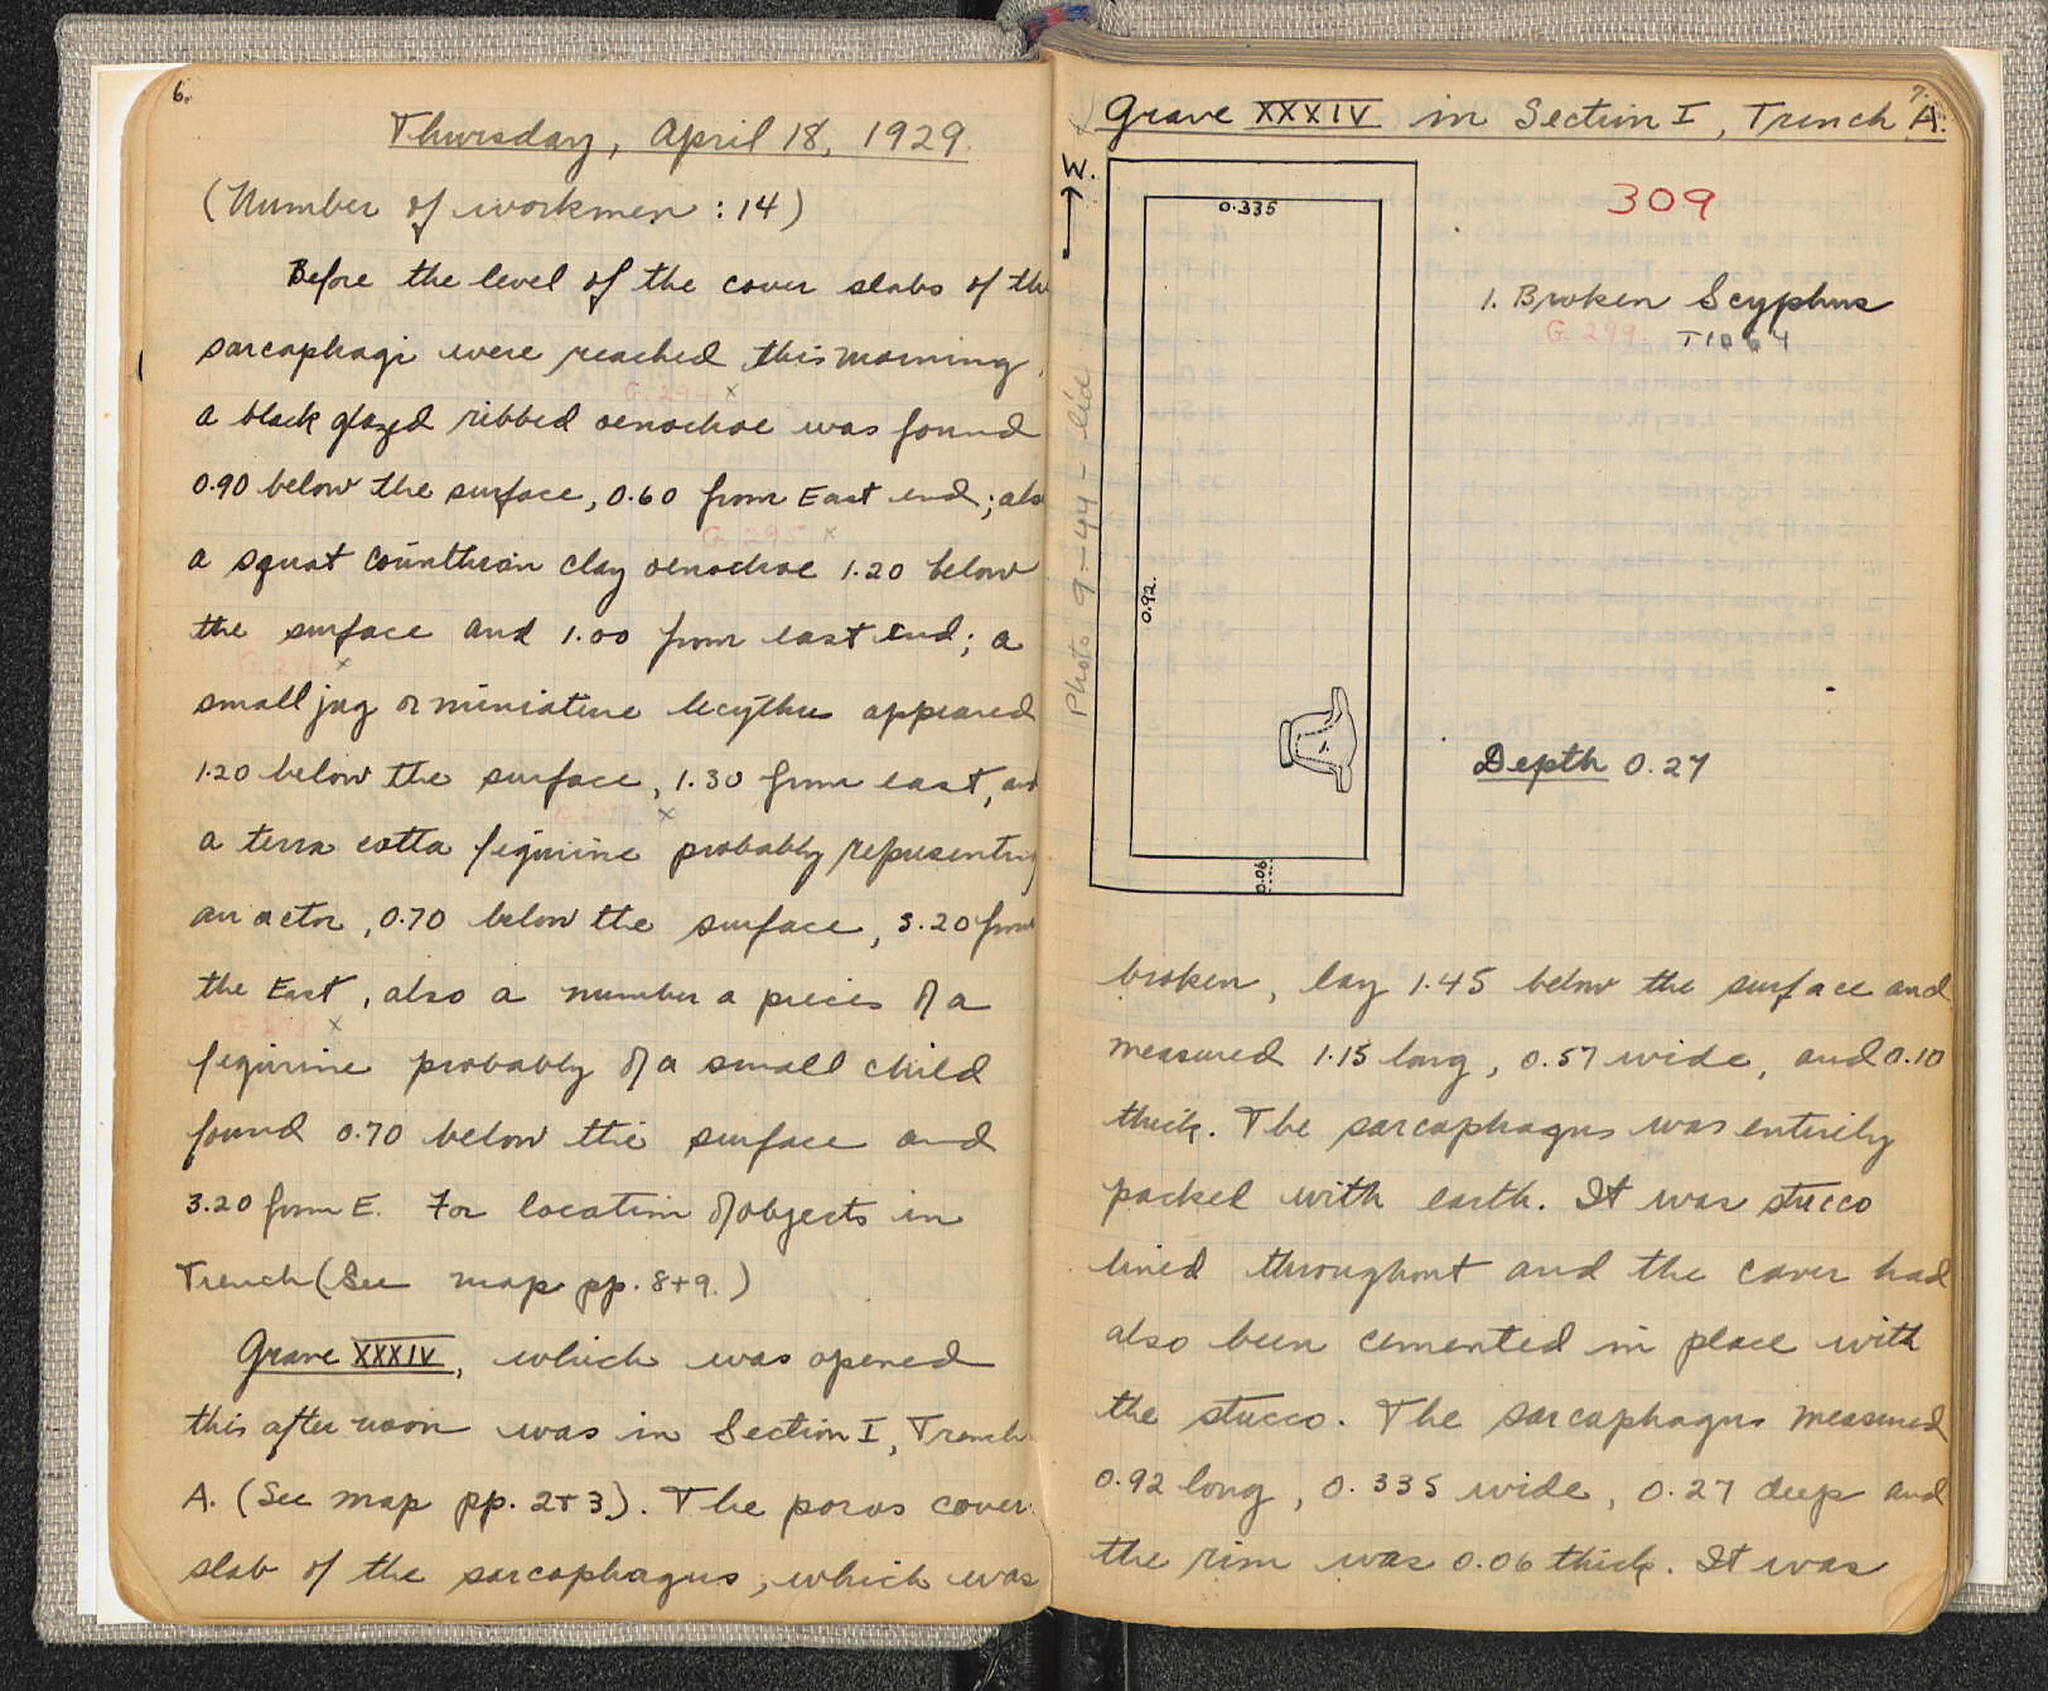 6.
Thursday, April 18, 1929.
(Number of workmen : 14)
Before the level of the cover slabs of the
sarcophagi were reached this morning,
G. 294 x
a black glazed ribbed oenochoe was found
0.90 below the surface, 0.60 from East end; also
G. 295 x
a squat Corinthian clay oenochoe 1.20 below
the surface and 1.00 from east end; a
G. 296 x
small jug or miniature lecythus appeared
1.20 below the surface, 1.30 from east, and
x
a terra cotta figurine probably representing
an actor, 0.70 below the surface, 3.20 from
the East, also a number a pieces of a
G. 298 x
figurine probably of a small child
found 0.70 below the surface and
3.20 from E. For location of objects in
Trench (See map pp. 8+9.)
Grave XXXIV, which was opened
this afternoon was in Section I, Trench
A. (See map pp. 2+3). The poros cover
slab of the sarcophagus, which was
7.
Grave XXXIV in Section I, Trench A.
W.
0.335
309
1. Broken Scyphus
G. 299. T1064
Photo 9-44-lid
0.92.
1.
Depth 0.27
0.06
broken, lay 1.45 below the surface and
measured 1.15 long, 0.57 wide, and 0.10
thick. The sarcophagus was entirely
packed with earth. It was stucco
lined throughout and the cover had
also been cemented in place with
the stucco. The sarcophagus measured
0.92 long, 0.335 wide, 0.27 deep and
the rim was 0.06 thick. It was